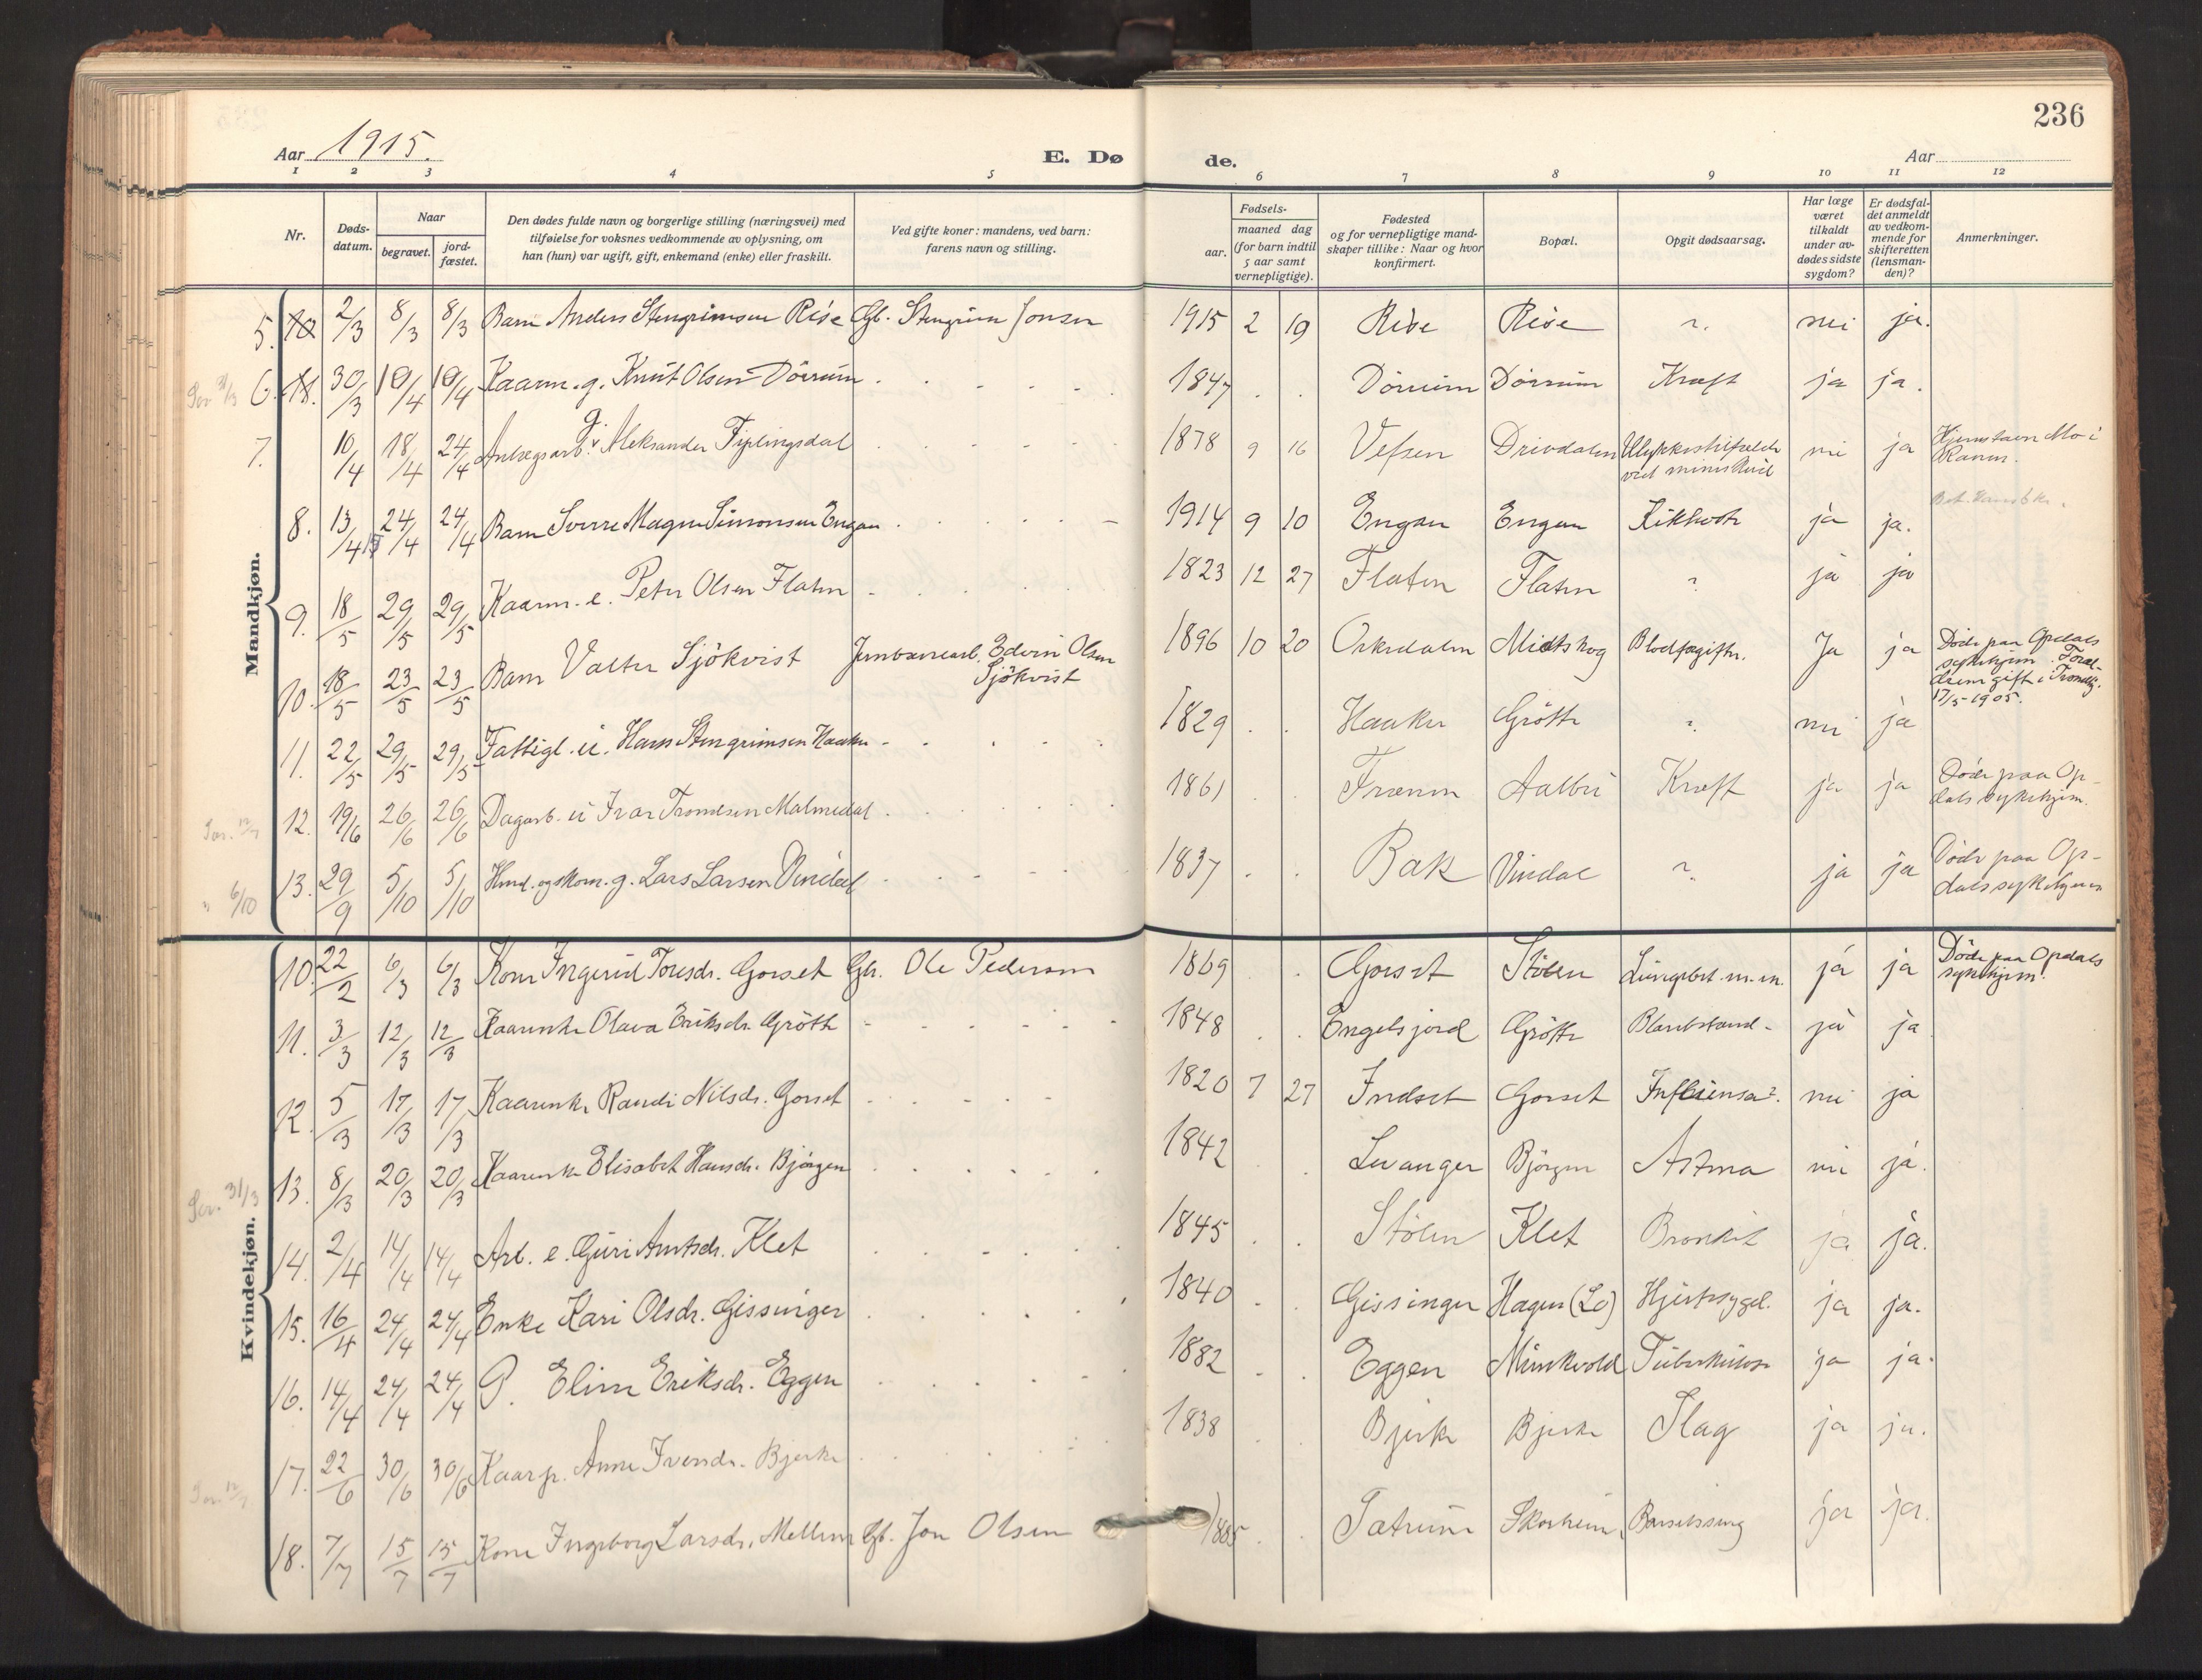 236
Aar 1915.
E. Dø
de.
Aar
1 2 3 4 5 6 7 8 9 10 11 12
Nr.
Døds-
datum.
Naar
begravet.
jord-
fæstet.
Den dødes fulde navn og borgerlige stilling (næringsvei) med
tilføielse for voksnes vedkommende av oplysning, om
han (hun) var ugift, gift, enkemand (enke) eller fraskilt.
Ved gifte koner: mandens, ved barn:
farens navn og stilling.
Fødsels-
aar.
maaned dag
(for barn indtil
5 aar samt
vernepligtige).
Fødested
og for vernepligtige mand-
skaper tillike: Naar og hvor
konfirmert.
Bopæl.
Opgit dødsaarsag.
Har læge
været
tilkaldt
under av-
dødes sidste
sygdom?
Er dødsfal-
det anmeldt
av vedkom-
mende for
skifteretten
(lensman-
den)?
Anmerkninger.
Mandkjøn.
5. 2/3 8/3 8/3 Barn Anders Stengrimsen Rise Gb. Stengrim Jonsen 1915 2 19 Rise Rise ?. nei ja.
6. 30/3 10/4 10/4 Kaarm. g. Knut Olsen Dörrum 1847 Dörrum Dörrum Kræft ja ja.
7. 10/4 18/4 24/4 Anlegsarb. g. Aleksander Fiplingsdal 1878 9 16 Vefsen Drivdalen Ulykkestilfælde nei ja Hjemstavn Mo i
ved mineskud Ranen.
8. 13/4 15 24/4 24/4 Barn Sverre Magne Simonsen Engan 1914 9 10 Engan Engan Kikhoste ja ja.
9. 18/5 29/5 29/5 Kaarm. e. Peter Olsen Flaten 1823 12 27 Flaten Flaten ? ja ja
10. 18/5 23/5 23/5 Barn Valter Sjökvist Jernbanearb. Edvin Olsen
Sjökvist
1896 10 20 Orkedalen Midtskog Blodforgiftn. Ja ja Döde paa Opdals
sykehjem. Foræl-
drene gift i Trondhj.
17/5-1905.
11. 22/5 29/5 29/5 Fattigl. u. Hans Stengrimsen Haaker 1829 Haaker Grötte ? nei ja
12. 19/6 26/6 26/6 Dagarb. u Ivar Trondsen Malmedal 1861 Frænen Aalbu Kræft ja ja Döde paa Op-
dals sykehjem.
13. 29/9 5/10 5/10 Hmd. og skom. g. Lars Larsen Vindal 1837 Bak Vindal ? ja ja Döde paa Op-
dals sykehjem
Kvindekjøn.
10. 22/2 6/3 6/3 Kone Ingerid Toresdr. Gorset Gbr. Ole Pedersen 1869 Gorset Stölen Lungebet. m.m. ja ja Döde paa Opdals
sykehjem.
11. 3/3 12/3 12/3 Kaarenke Olava Eriksdr. Grötte 1848 Engelsjord Grötte ja ja
12. 5/3 17/3 17/3 Kaarenke Randi Nilsdr. Gorset 1820 7 27 Indset Gorset Influensa?. nei ja
13. 8/3 20/3 20/3 Kaarenke Elisabet Hansdr. Bjørgen 1842 Levanger Björgen Astma nei ja.
14. 2/4 14/4 14/4 Arb. e. Guri Arntsdr. Klet 1845 Stölen Klet Bronkit ja ja.
15. 16/4 24/4 24/4 Enke Kari Olsdr. Gissinger 1840 Gissinger Hagen (Lo) Hjertesygd. ja ja.
16. 14/4 24/4 24/4 P. Eline Eriksdr. Eggen 1882 Eggen Munkvold Tuberkulose ja ja.
17. 22/6 30/6 30/6 Kaarp. Anne Iversdr. Bjerke 1838 Bjerke Bjerke Slag ja ja.
18. 7/7 15/7 15/7 Kone Ingeborg Larsdr. Mellem Gb. Jon Olsen 1885 Sætrum Skorheim Barselsseng ja ja.